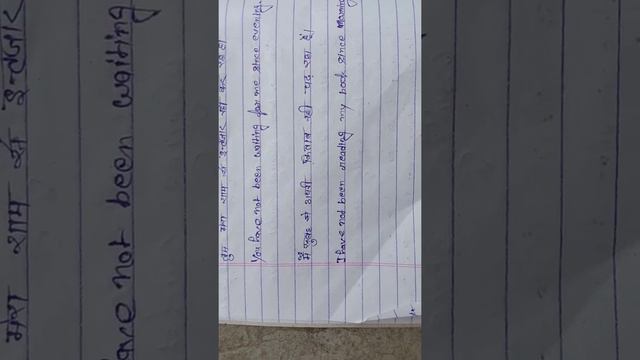 तुम मेरा शाम से इन्तजार नही कर रहे हो
You have not been waiting for me since evening.
मैं सुबह से अपनी किताब नही पढ़ रहा हूँ।
I have not been reading my book since morning